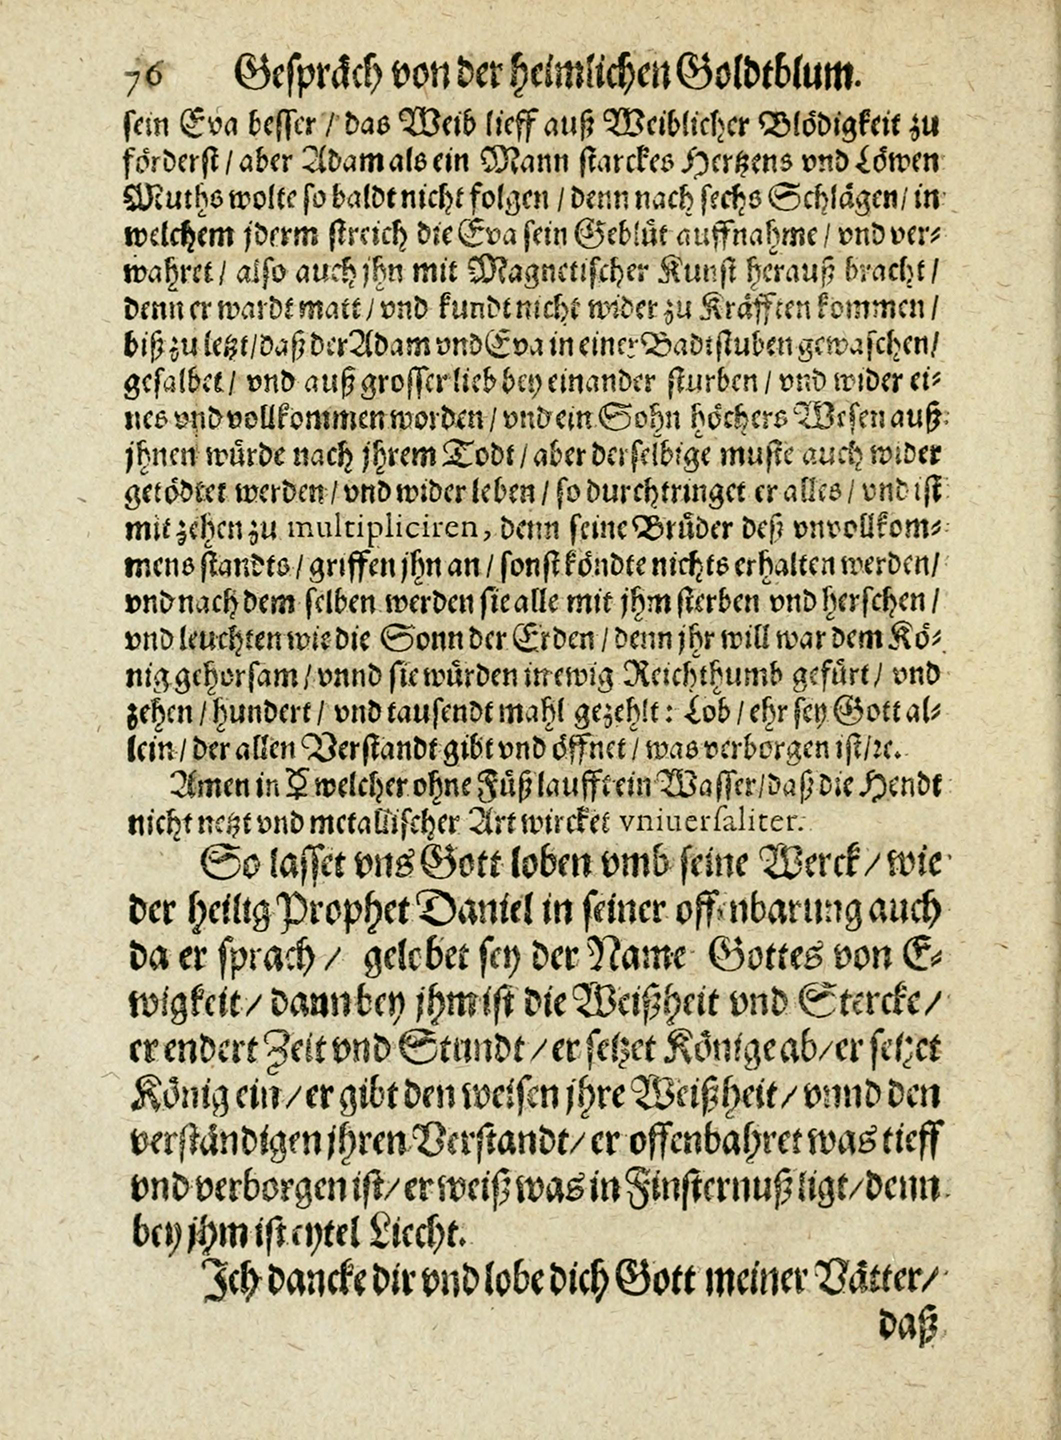 76 Gespräch von der heimlichen Goldtblum.
sein Eva besser / das Weib lieff auß Weiblicher Blödigkeit zu
förderst / aber Adam als ein Mann starckes Hertzens vnd Löwen
Muths wolte so baldt nicht folgen / denn nach sechs Schlägen / in
welchem jderm streich die Eva sein Geblüt auffnahme / vnd ver⸗
wahret / also auch jhn mit Magnetischer Kunst herauß bracht /
denn er wardt matt / vnd kundt nicht wider zu Kräfften kommen /
biß zu letzt / daß der Adam vnd Eva in einer Badtstuben gewaschen /
gesalbet / vnd auß grosser lieb bey einander sturben / vnd wider ei⸗
nes vnd vollkommen worden / vnd ein Sohn höchers Wesen auß
jhnen würde nach jhrem Todt / aber derselbige muste auch wider
getödtet werden / vnd wider leben / so durchtringet er alles / vnd ist
mit zehen zu multipliciren, denn seine Brüder deß vnvollkom⸗
mens standts / griffen jhn an / sonst köndte nichts erhalten werden /
vnd nach dem selben werden sie alle mit jhm sterben vnd herschen /
vnd leuchten wie die Sonn der Erden / denn jhr will war dem Kö⸗
nig gehorsam / vnnd sie würden in ewig Reichthumb gefürt / vnd
zehen / hundert / vnd tausendt mahl gezehlt : Lob / ehr sey Gott al⸗
lein / der allen Verstandt gibt vnd öffnet / was verborgen ist / ꝛc.
Amen in ☿ welcher ohne Füß laufft ein Wasser / daß die Hendt
nicht netzt vnd metallischer Art wircket vniuersaliter.
So lasset vns Gott loben vmb seine Werck / wie
der heilig Prophet Daniel in seiner offenbarung auch
da er sprach / gelobet sey der Name Gottes von E⸗
wigkeit / dann bey jhm ist die Weißheit vnd Stercke /
er endert Zeit vnd Stundt / er setzet Könige ab / er setzet
König ein / er gibt den weisen jhre Weißheit / vnnd den
verständigen jhren Verstandt / er offenbahret was tieff
vnd verborgen ist / er weiß was in Finsternuß ligt / denn
bey jhm ist eytel Liecht.
Ich dancke dir vnd lobe dich Gott meiner Vätter /
daß